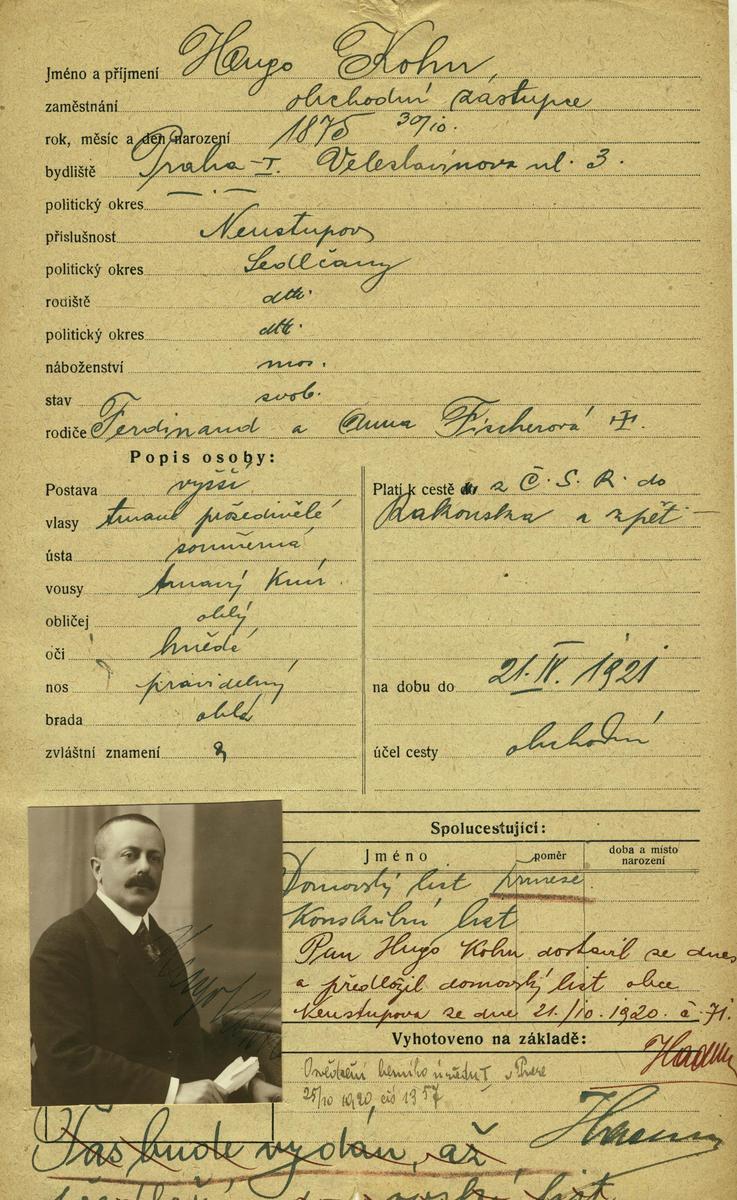 Jméno a příjmení Hugo Kohn
zaměstnání obchodní zástupce
rok, měsíc a den narození 1875 30/10.
bydliště Praha - I. Veleslavínova ul. 3.
politický okres — . —
příslušnost Neustupov
politický okres Sedlčany
rodiště dtto.
politický okres dtto.
náboženství mos.
stav svob.
rodiče Ferdinand a Anna Fischerová
Popis osoby:
Postava vyšší
vlasy tmavé prošedivělé
ústa souměrná
vousy tmavý knír.
obličej oblý
oči hnědé
nos pravidelný
brada oblá
zvláštní znamení
Platí k cestě z Č. S. R. do
Rakouska a zpět —
na dobu do 21. IV. 1921
účel cesty obchodní
Spolucestující:
Jméno poměr doba a místo narození
Domovský list přinese
Konskribní list
Pan Hugo Kohn dostavil se dnes
a předložil domovský list obce
Neustupova ze dne 21./10. 1920. č. 71.
Vyhotoveno na základě:
Osvědčení berního úřadu I v Praze
25/10 1920 čís 1357
Pas bude vydán, až
list